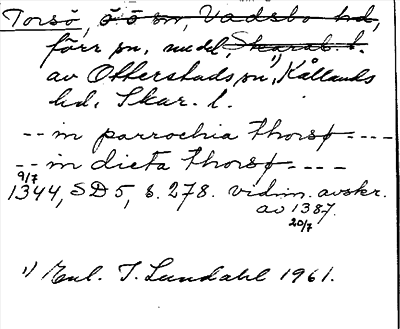 Torsö, ö o sn, Vadsbo hd,
förr sn, nu del, Skarab. l.
av Otterstads sn¹⁾, Kållands
hd, Skar. l.
-- in parrochia thorsø ----
-- in dicta thorsø ----
9/7
1344, SD 5, s. 278. vidim. avskr.
av 1387.
20/7
¹⁾ Enl. I. Lundahl 1961.